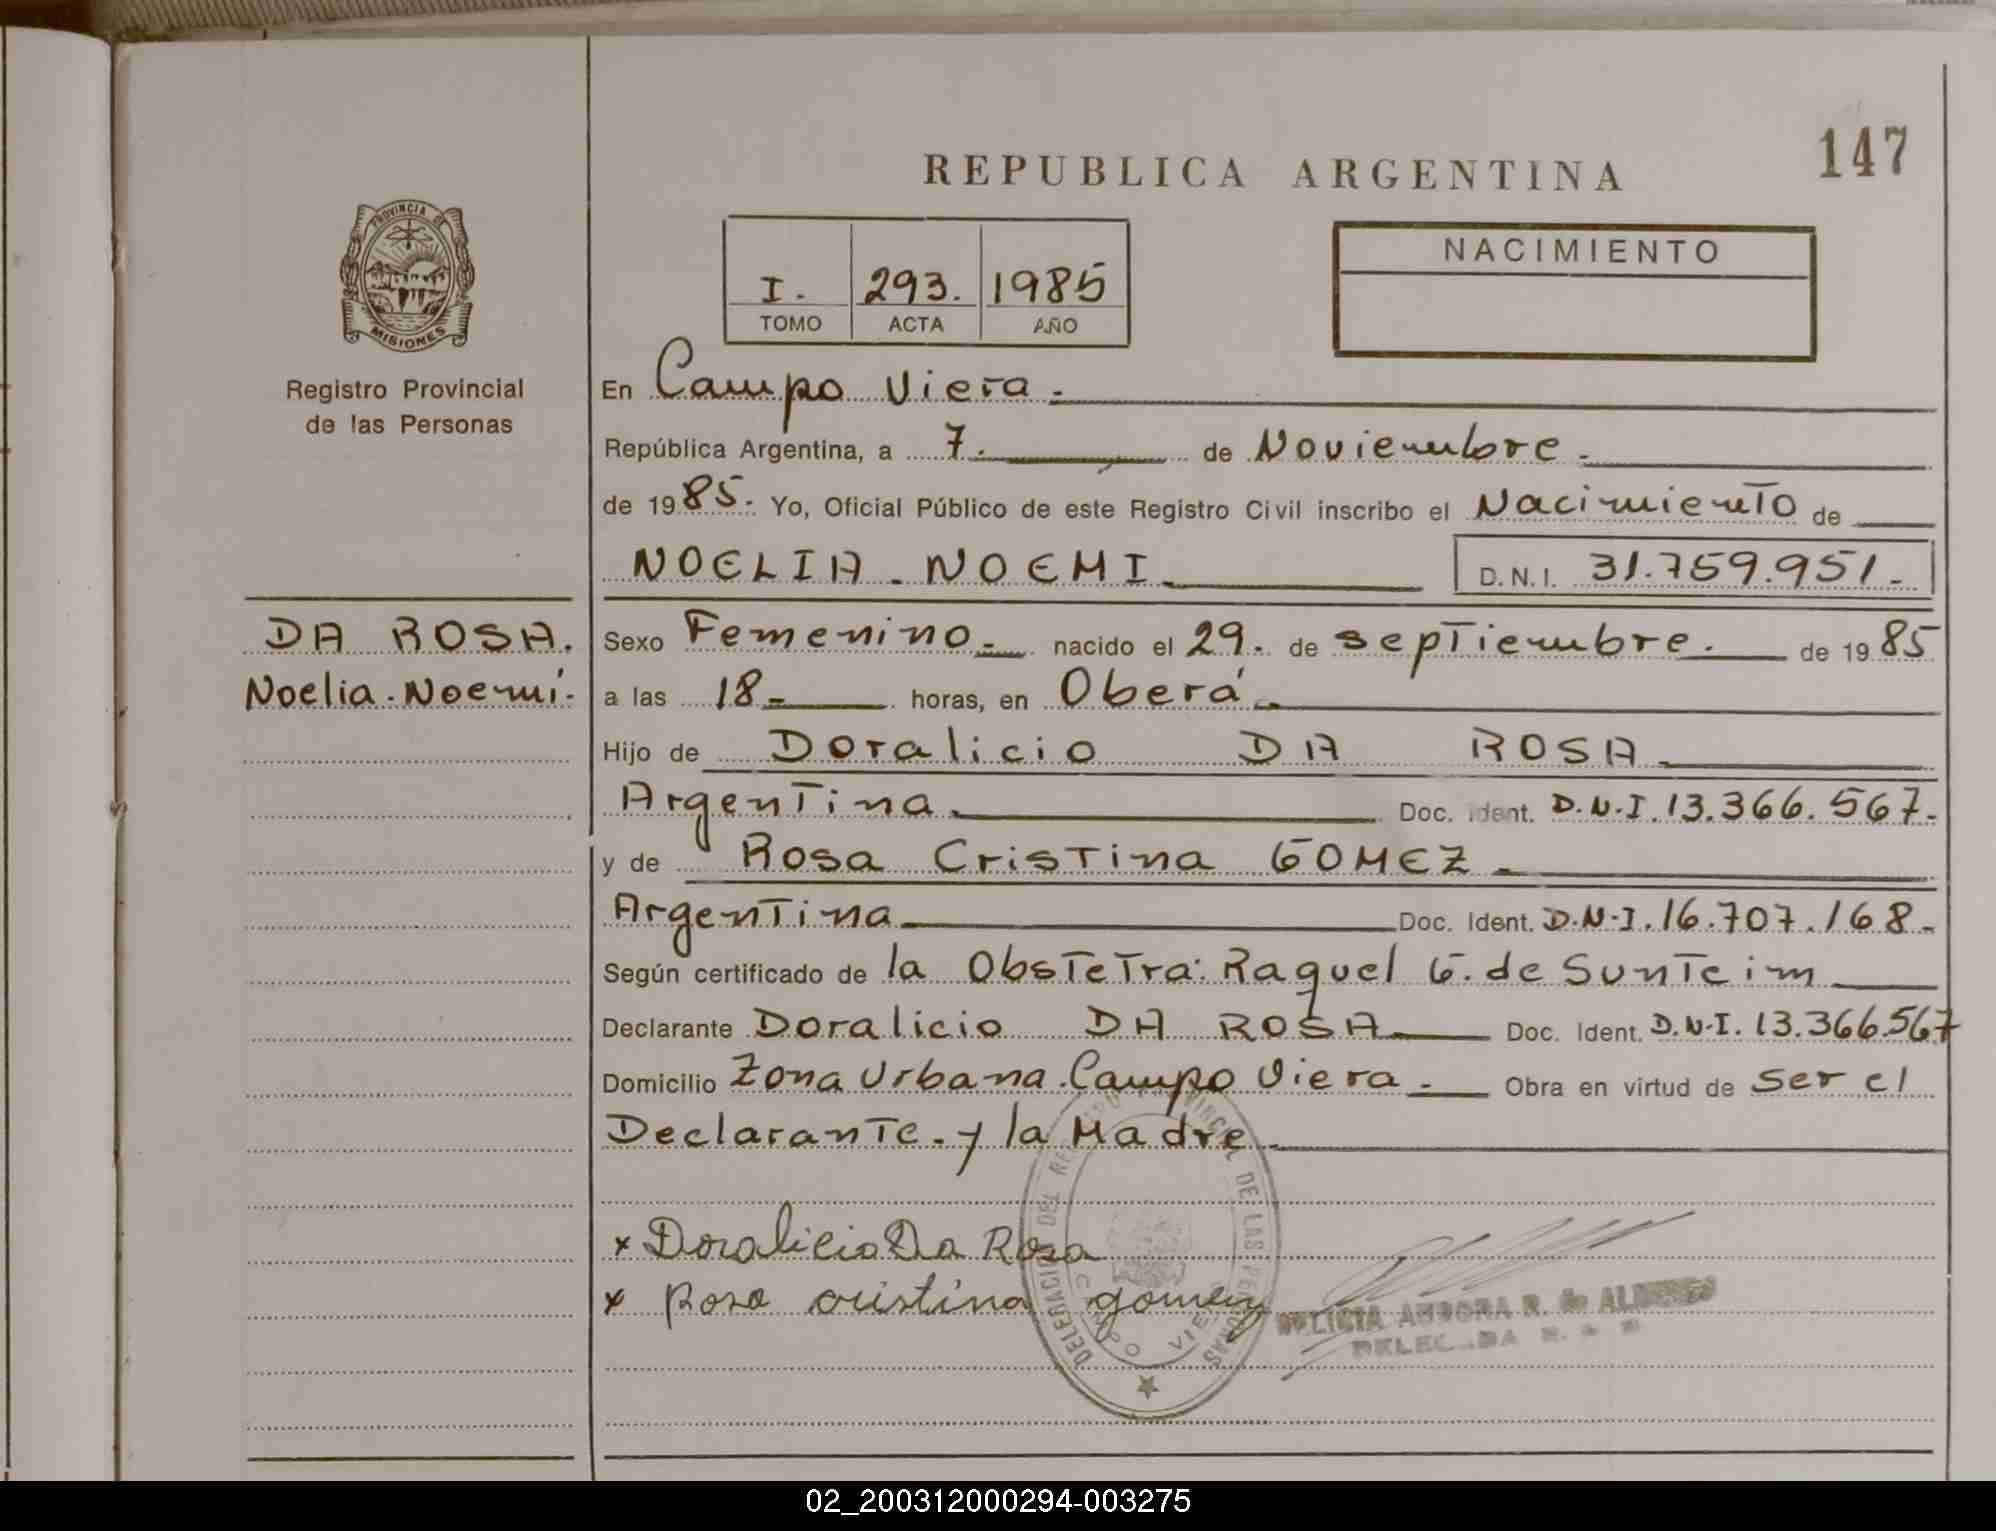 147
REPUBLICA ARGENTINA
PROVINCIA DE
MISIONES
Registro Provincial
de las Personas
I. 293. 1985
TOMO ACTA AÑO
NACIMIENTO
En Campo Viera.
República Argentina, a 7. de Noviembre.
de 1985. Yo, Oficial Público de este Registro Civil inscribo el Nacimiento de
NOELIA. NOEMI D.N.I. 31.759.951.-
DA ROSA.
Noelia. Noemí.
Sexo Femenino.- nacido el 29. de septiembre. de 1985
a las 18- horas, en Oberá.
Hijo de Doralicio DA ROSA
Argentina. Doc. Ident. D.N.I. 13.366.567.-
y de Rosa Cristina GOMEZ
Argentina Doc. Ident. D.N.I. 16.707.168.-
Según certificado de la Obstetra: Raquel G. de Sunteim
Declarante Doralicio DA ROSA Doc. Ident. D.N.I. 13.366.567
Domicilio Zona Urbana. Campo Viera. Obra en virtud de ser el
Declarante. y la Madre
x Doralicio Da Rosa
x Rosa cristina gomez
DELEGACION DEL PROVINCIAL DE LAS PERSONAS
CAMPO VIERA
DELICIA AURORA R. de
02_200312000294-003275